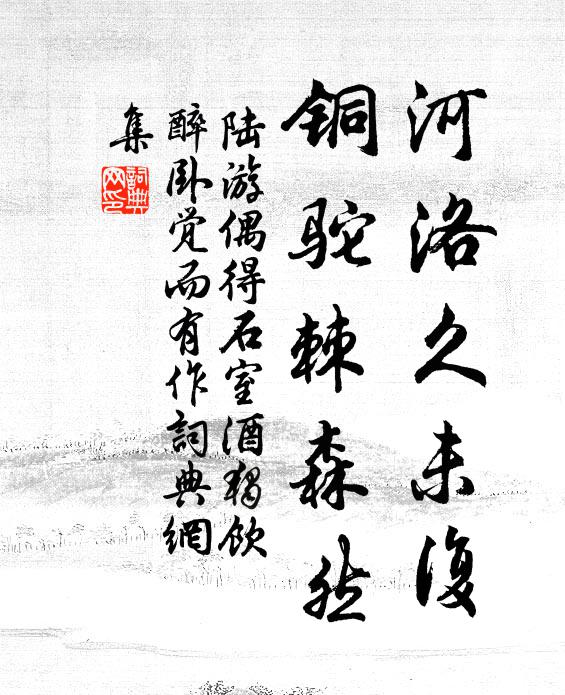 河洛久未復
銅駝棘森然
陆游偶得石室酒独飲
醉卧觉而有作詞典網
集
詞典
网印